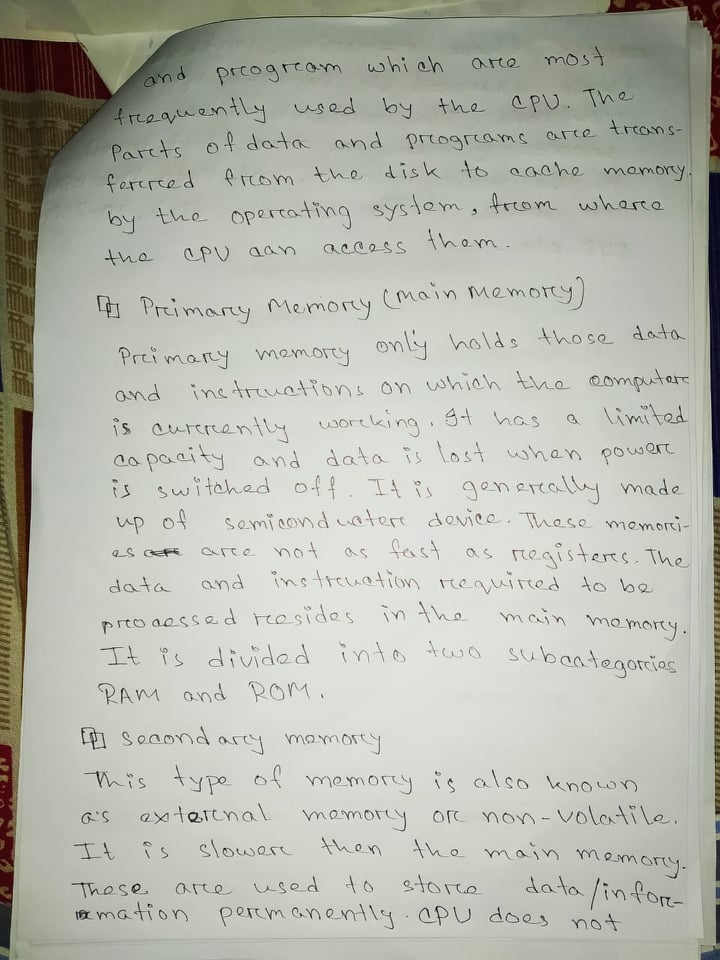 and program which are most
frequently used by the CPU. The
Parts of data and programs are trans-
ferred from the disk to cache memory.
by the operating system, from where
the CPU can access them.
Primary Memory (main memory)
Primary memory only holds those data
and instructions on which the computer
is currently working. It has a limited
capacity and data is lost when power
is switched off. It is generally made
up of semiconducter device. These memori-
es are not as fast as registers. The
data and instruction required to be
processed resides in the main memory.
It is divided into two subcategories
RAM and ROM.
Secondary memory
This type of memory is also known
as external memory or non-volatile.
It is slower then the main memory.
These are used to store data/infor-
mation permanently. CPU does not